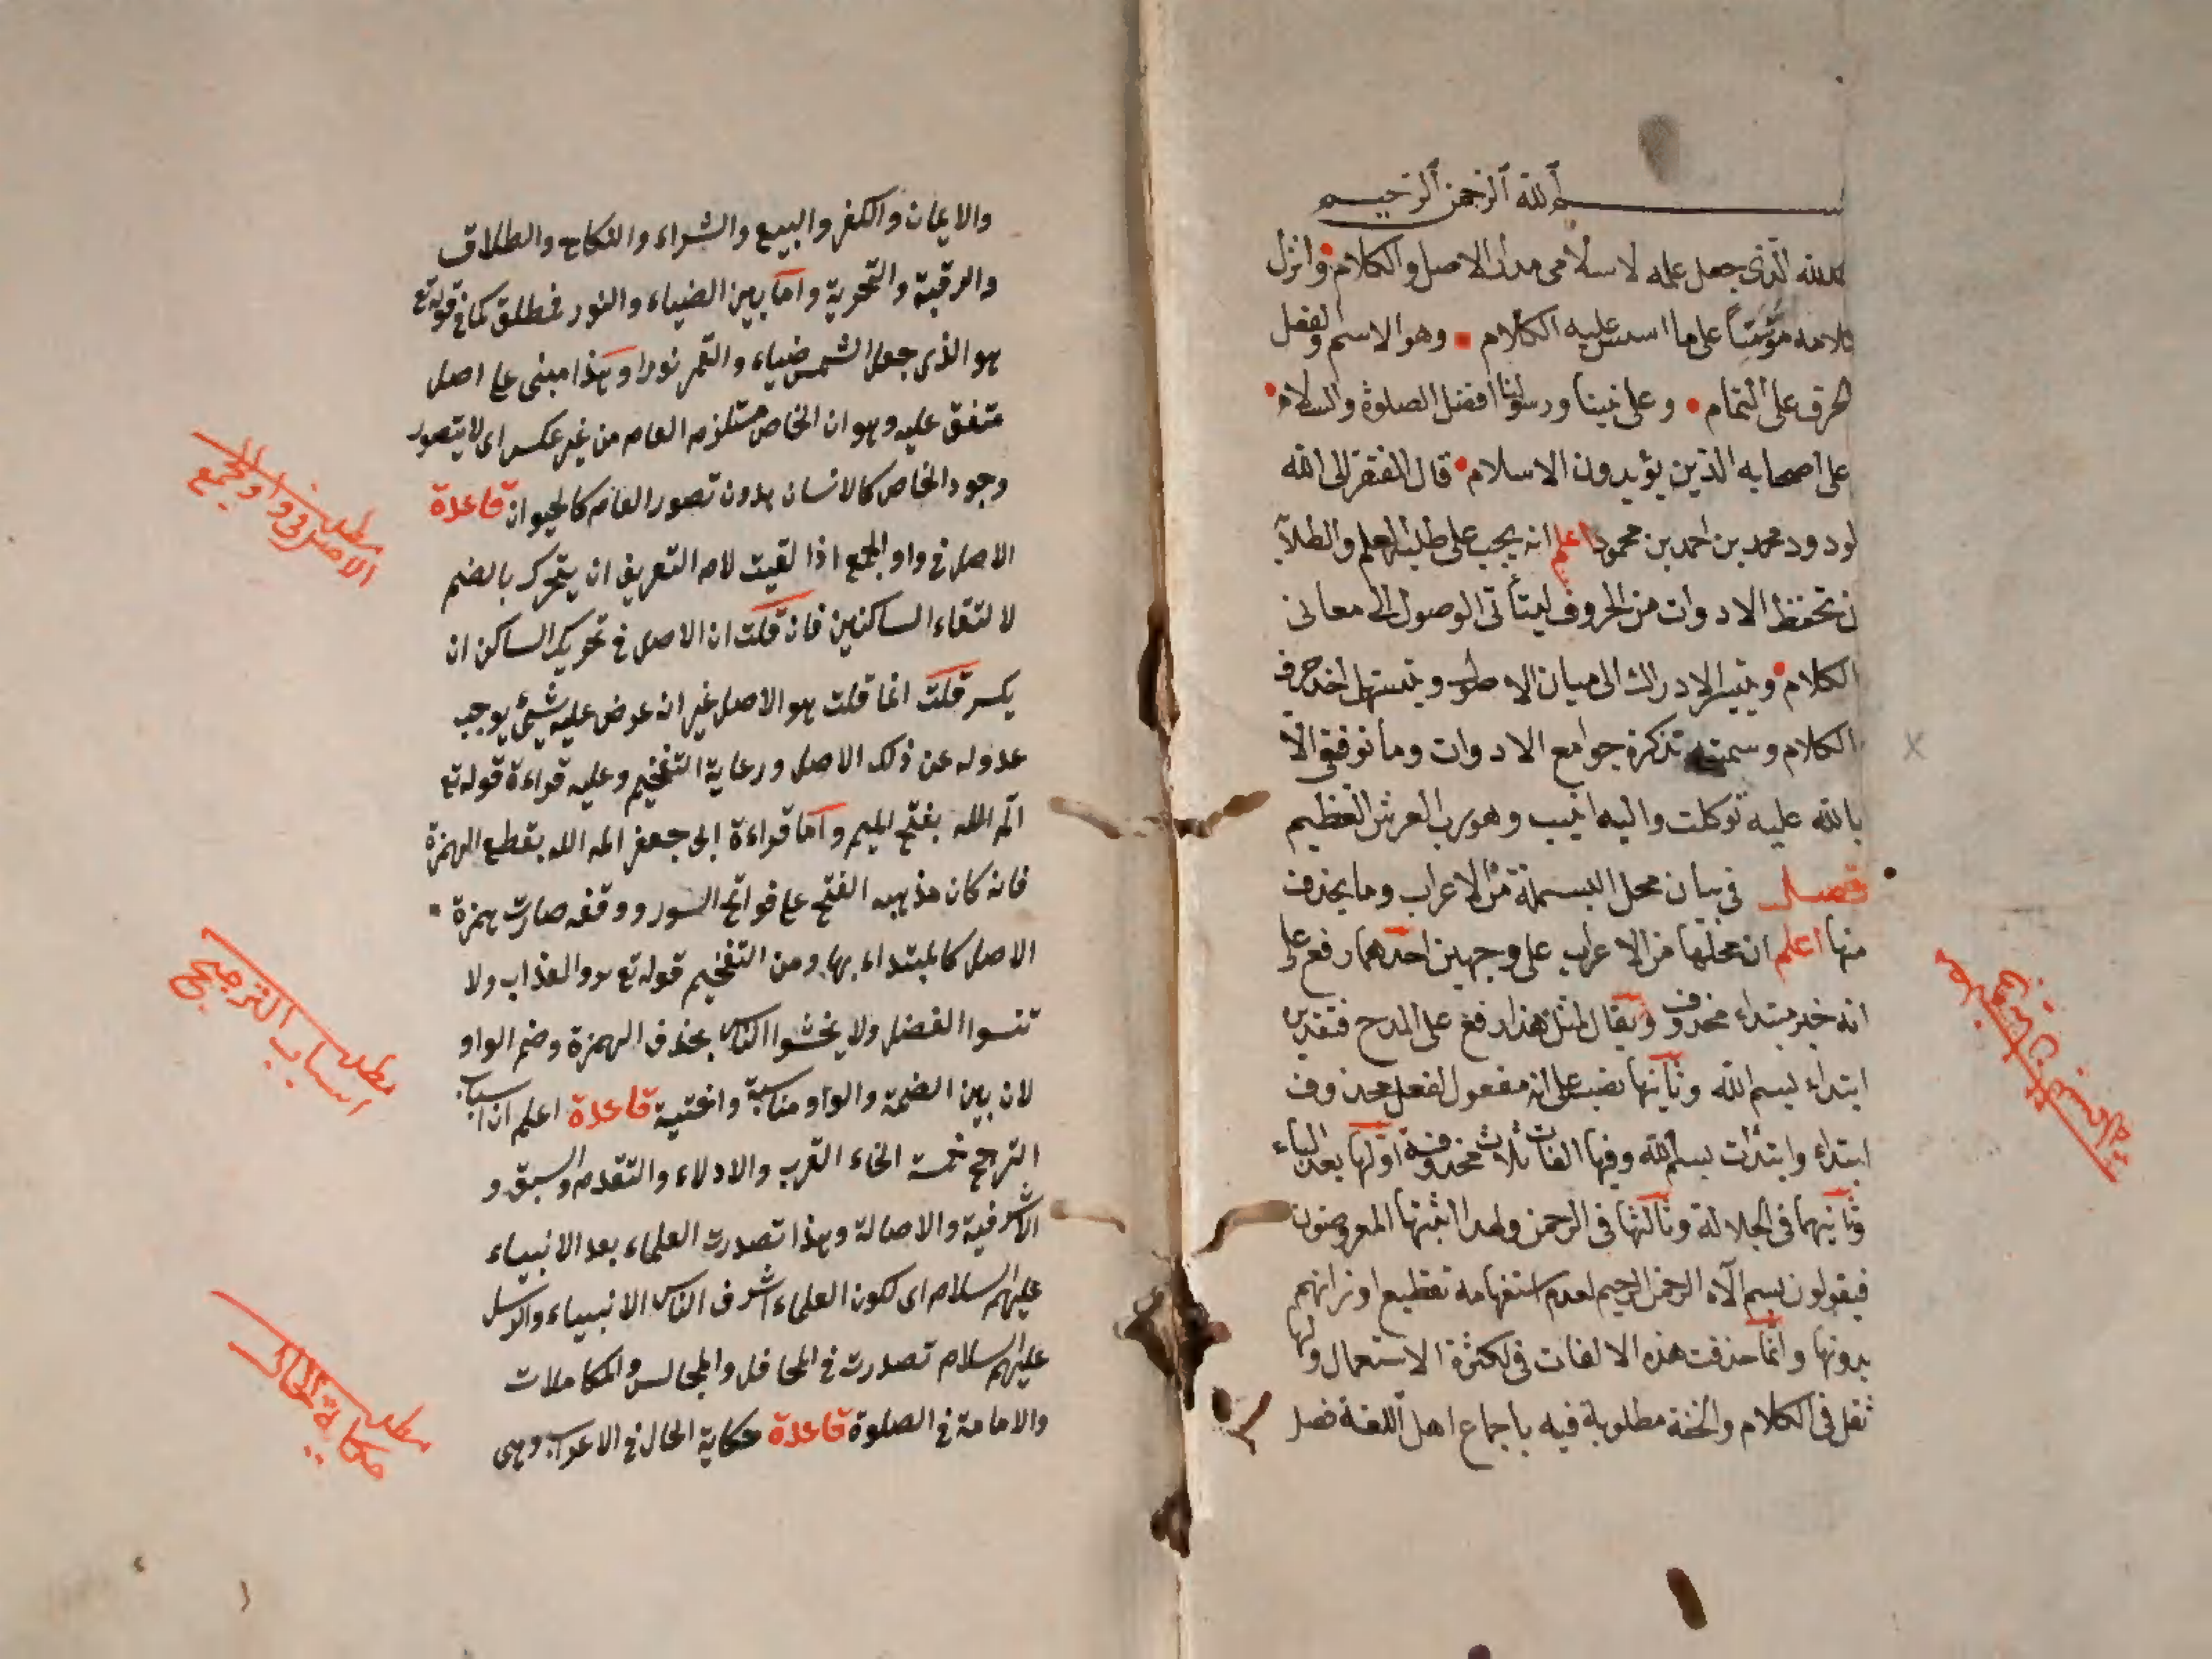 بسم الله الرحمن الرحيم
لله الذى جعل علم لاسلامى مدار الاصل والكلام وانزل
كلامه مؤسسا على ما اسس عليه الكلام وهو الاسم والفعل
الحرف على التمام وعلى نبينا ورسولنا افضل الصلوة والسلام
على اصحابه الذين يؤيدون الاسلام قال الفقير الى الله
لودود محمد بن احمد بن محمود اعلم انه يجب على طلبة العلم والطلاب
ن تحفظ الادوات من الحروف ليتأتى الوصول الى معانى
الكلام ويتيسر الادراك الى ميان الاطوب ويتسهل اخذ حرف
الكلام وسمته تذكرة جوامع الادوات وما توفيقى الا
بالله عليه توكلت واليه انيب وهو رب العرش العظيم
فصل فى بيان محل البسملة من الاعراب وما يحذف
منها اعلم ان محلها من الاعراب على وجهين احدهما رفع على
انه خبر مبتداء محذوف ويقال لمثل هذا رفع على المدح فتقديره
ابتداء بسم الله وثانيها نصب على انه مفعول لفعل محذوف
ابتداء وابتدأت بسم الله وفيها الفات ثلاث محذوفة اولها بعد الباء
وثانيهما فى الجلالة وثالثها فى الرحمن ولهذا اثبتها المعروضون
فيقولون بسم الاه الرحمن الرحيم لعدم استفهامه تقطيع اوزانهم
بدونها وانما حذفت هذه الالفات فى لكثرة الاستعمال ولها
ثقل فى الكلام والخفة مطلوبة فيه باجماع اهل اللغة فصل
والايمان والكفر والبيع والشراء والنكاح والطلاق
والرقية والتحرية واما بين الضياء والنور فمطلق كما فى قوله تع
هو الذى جعل الشمس ضياء والقمر نورا وهذا مبنى على اصل
متفق عليه وهو ان الخاص مستلزم العام من غير عكس اى لا يتصور
وجود الخاص كالانسان بدون تصور العام كالحيوان قاعدة
الاصل فى واو الجمع اذا لقيت لام التعريف ان يتحرك بالضم
لالتقاء الساكنين فان قلت ان الاصل فى تحريك الساكن ان
يكسر قلت انما قلت هو الاصل غير انه عرض عليه شيئ يوجب
عدوله عن ذلك الاصل ورعاية التفخيم وعليه قراءة قوله تع
الم الله بفتح الميم واما قراءة ابى جعفر الم الله بقطع الهمزة
فانه كان مذهبه الفتح على فواتح السور ووقفه صارت همزة
الاصل كالمبتداء بها ومن التفخيم قوله تع والعذاب ولا
تنسوا الفضل ولا يخشوا الناس بحذف الهمزة وضم الواو
لان بين الضمة والواو مناسبة واختية قاعدة اعلم ان اسباب
الترجح خمسة انحاء القرب والادلاء والتقدم والسبق و
الاشرفية والاصالة وبهذا تصدرت العلماء بعد الانبياء
عليهم السلام اى لكون العلماء اشرف الناس الا نبياء والرسل
عليهم السلام تصدرت فى المحافل والمجالس والمكاملات
والامامة فى الصلوة قاعدة حكاية الحال فى الاعراب وهى
مطلب
الاصل فى واو الجمع
مطلب
اسباب الترجيح
مطلب
حكاية الحال